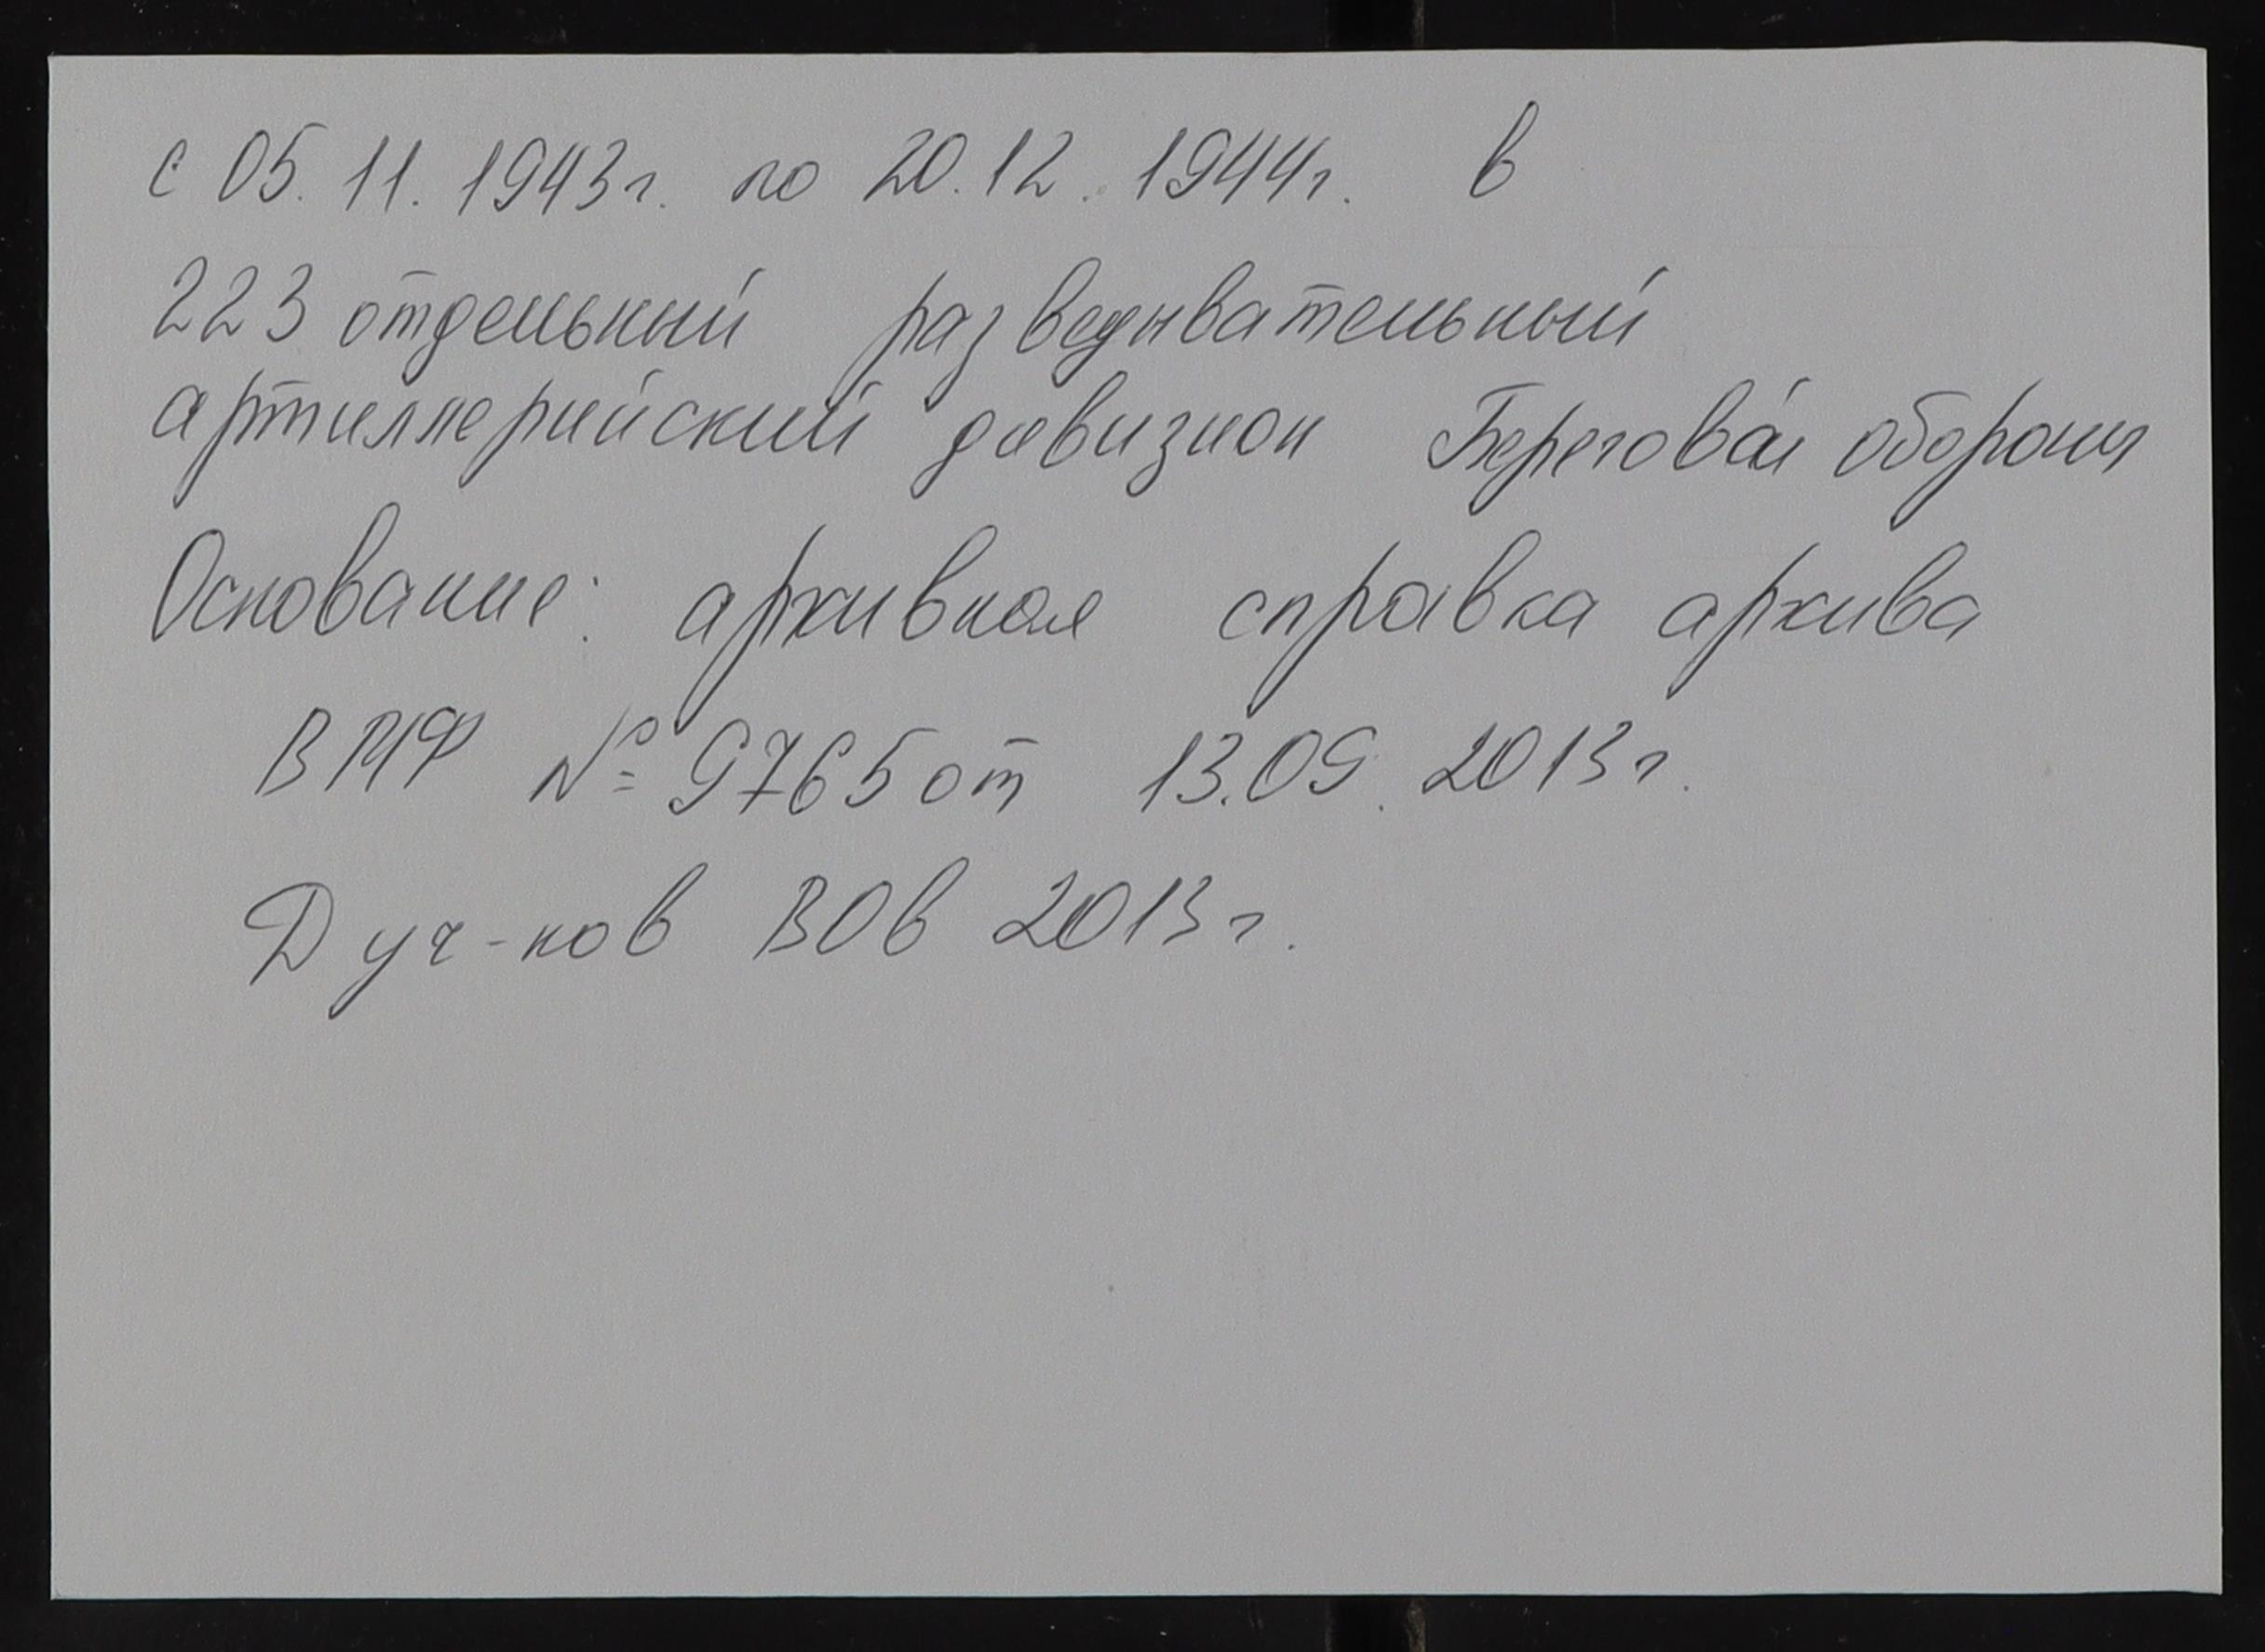 с 05. 11. 1943г. по 20.12. 1944г. в
223 отдельный разведывательный
артиллерийский дивизион Береговой обороны
Основание: архивная справка архива
ВМФ № 9765 от 13.09. 2013г.
Д уч-ков ВОв 2013г.